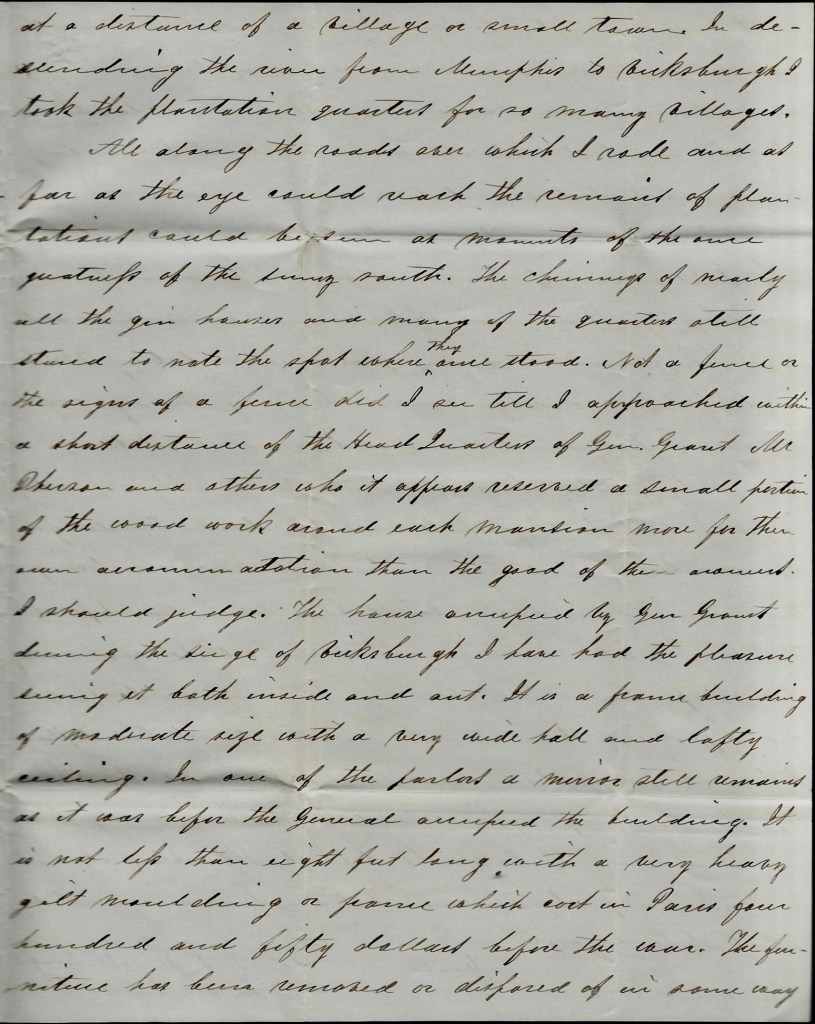 at a distance of a village or small town. In de-
scending the river from Memphis to Vicksburgh I
took the plantation quarters for so many villages.
All along the roads over which I rode and as
far as the eye could reach the remains of plan-
tations could be seen as moments of the once
greatness of the sunny south. The chimneys of nearly
all the gin houses and many of the quarters still
stand to note the spot where they once stood. Not a fence or
the signs of a fence did I see till I approached within
a short distance of the Head Quarters of Gen. Grant Mc
Pherson and others who it appears reserved a small portion
of the wood work around each mansion more for their
own accommodation than the good of the owners.
I should judge. The house occupied by Gen Grant
during the siege of Vicksburgh I have had the pleasure
seeing it both inside and out. It is a frame building
of moderate size with a very wide hall and lofty
ceiling. In one of the parlors a mirror still remains
as it was befor the General occupied the building. It
is not less than eight feet long with a very heavy
gilt moulding or frame which cost in Paris four
hundred and fifty dollars before the war. The fur-
niture has been removed or disposed of in some way